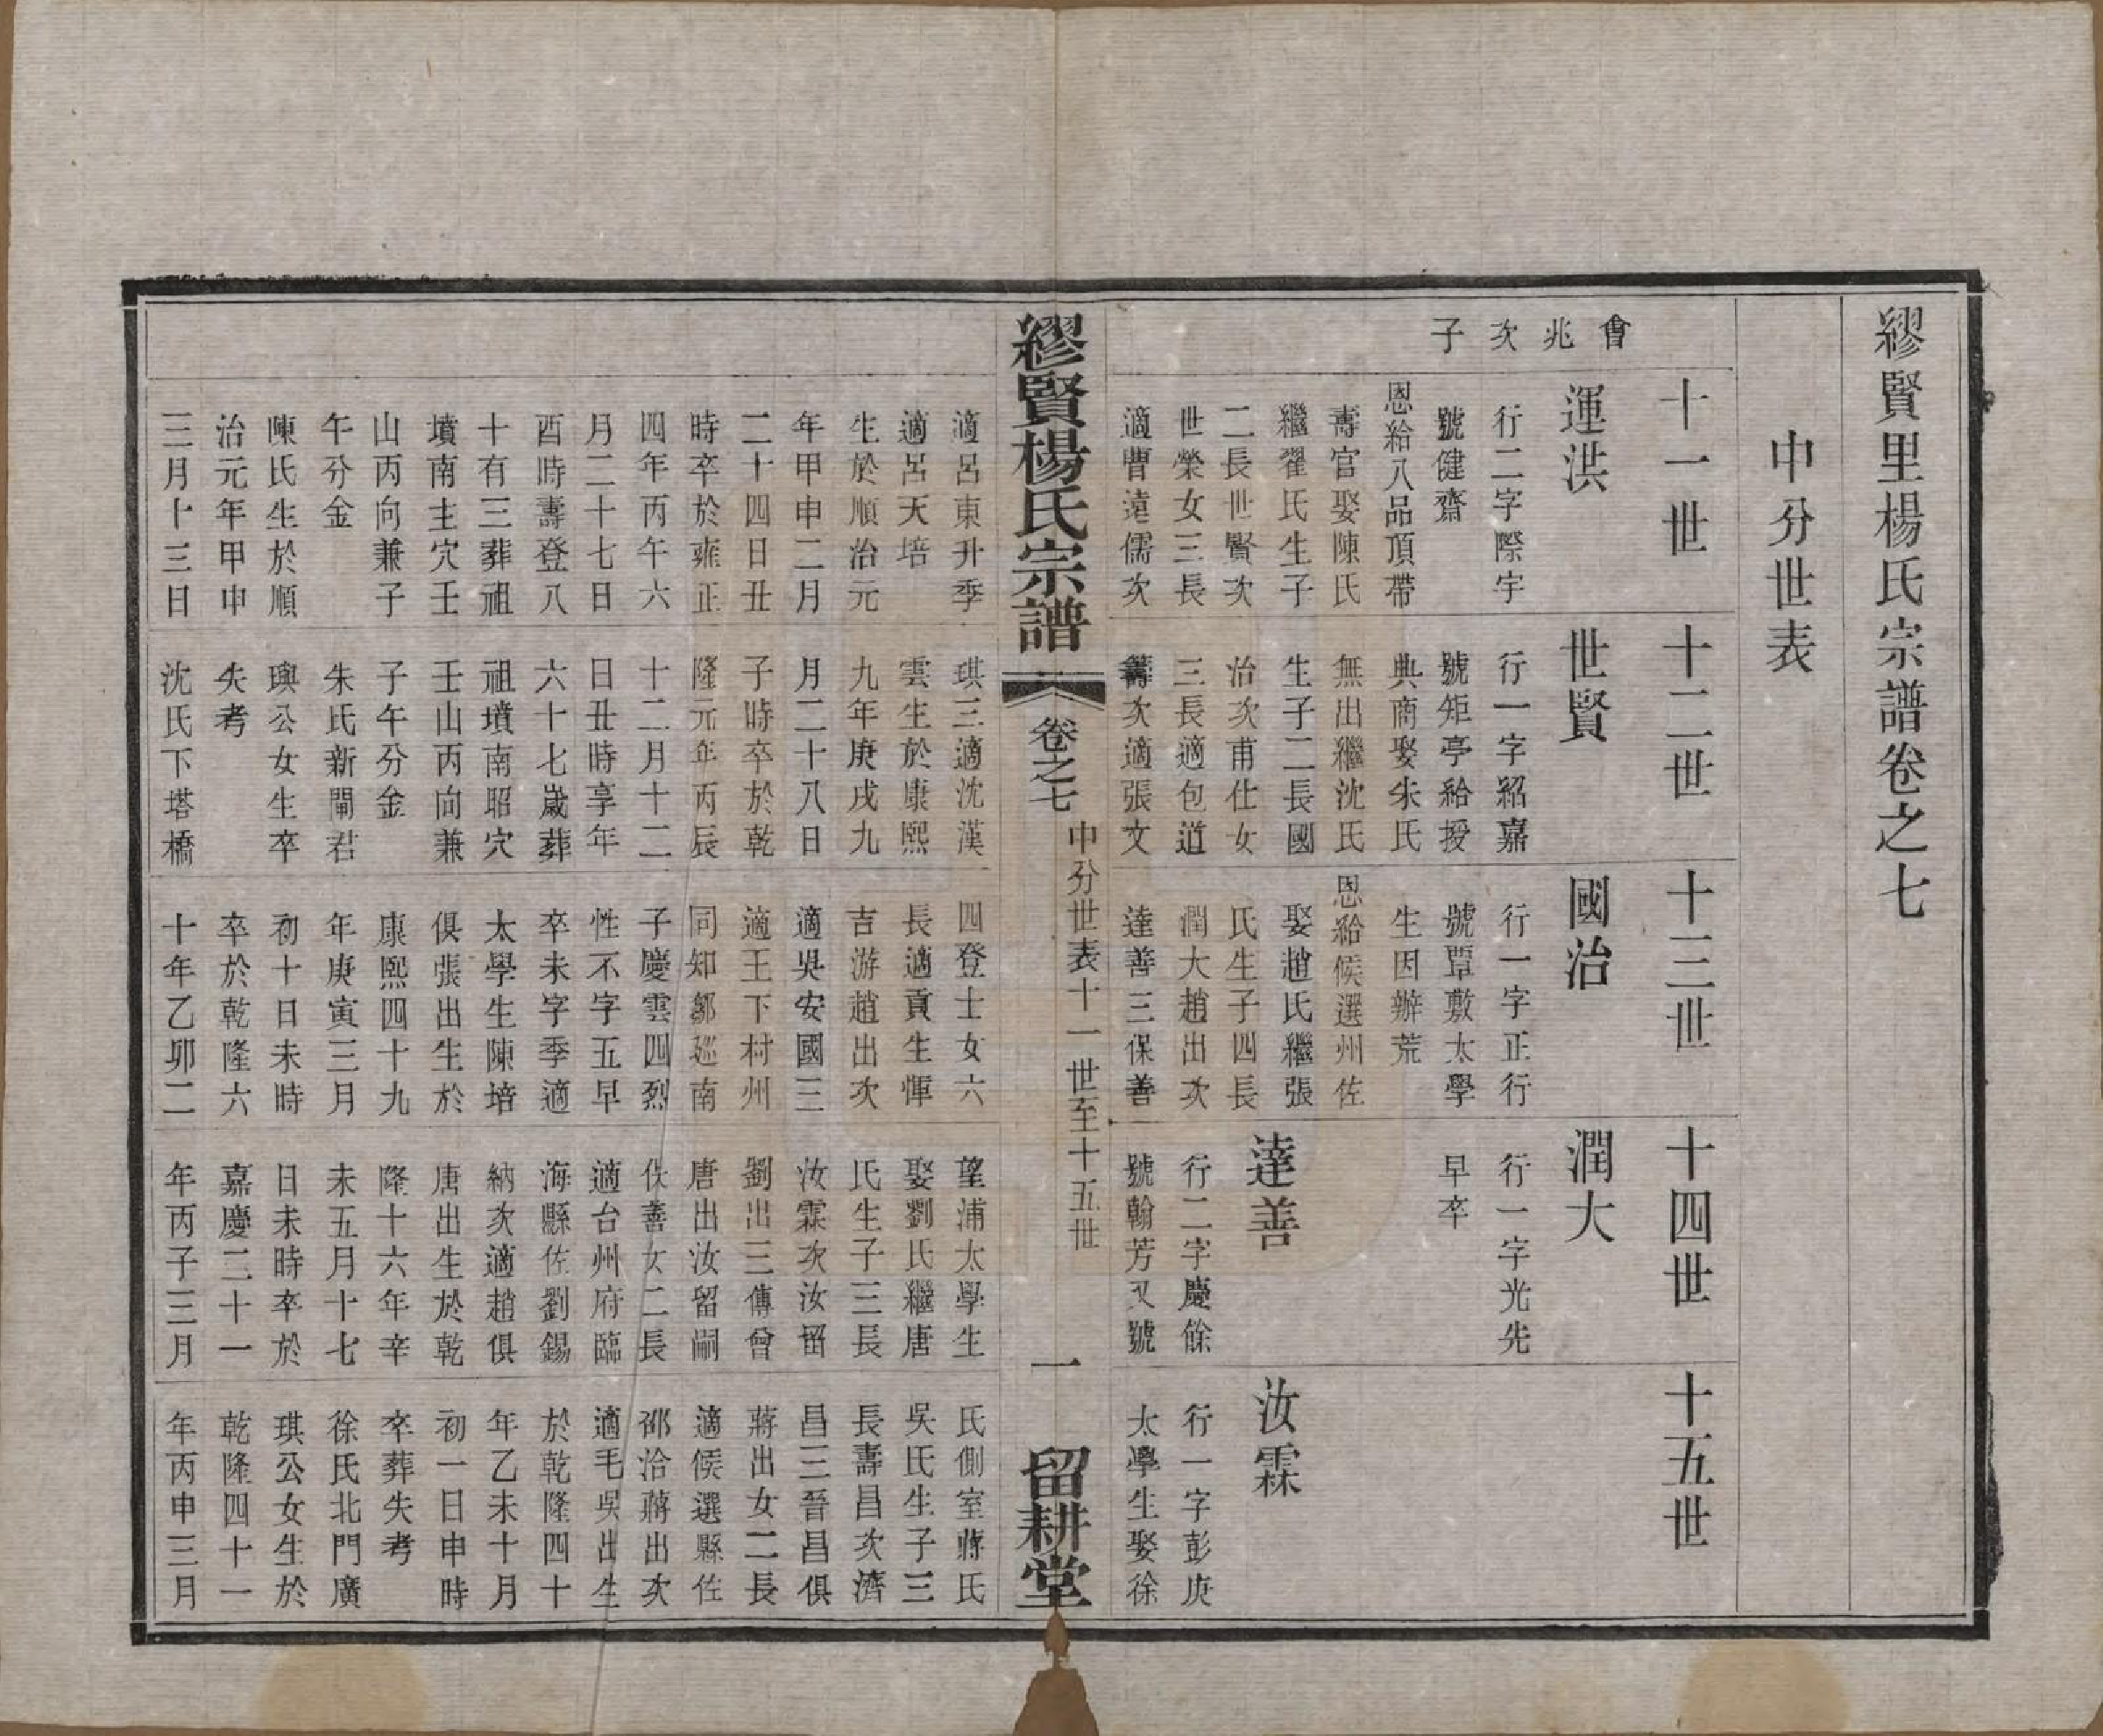 繆賢里楊氏宗譜卷之七
中分世表
會兆次子
十一世
運洪
行二字際宇
號健齋
恩給八品頂帶
壽官娶陳氏
繼翟氏生子
二長世賢次
世榮女三長
適曹遠儒次
十二世
世賢
行一字紹嘉
號矩亭給授
典商娶朱氏
無出繼沈氏
生子二長國
治次甫仕女
三長適包道
籌次適張文
十三世
國治
行一字正行
號覃敷太學
生因辦荒
恩給候選州佐
娶趙氏繼張
氏生子四長
潤大趙出次
達善三保善
十四世
潤大
行一字光先
早卒
達善
行二字慶餘
號翰芳又號
十五世
汝霖
行一字彭庚
太學生娶徐
繆賢楊氏宗譜
卷之七
中分世表十一世至十五世
一
留耕堂
適呂東升季
適呂天培
生於順治元
年甲申二月
二十四日丑
時卒於雍正
四年丙午六
月二十七日
酉時壽登八
十有三葬祖
墳南主穴壬
山丙向兼子
午分金
陳氏生於順
治元年甲申
三月十三日
琪三適沈漢
雲生於康熙
九年庚戌九
月二十八日
子時卒於乾
隆元年丙辰
十二月十二
日丑時享年
六十七歲葬
祖墳南昭穴
壬山丙向兼
子午分金
朱氏新閘君
璵公女生卒
失考
沈氏下塔橋
四登士女六
長適貢生惲
吉游趙出次
適吳安國三
適王下村州
同知鄒廵南
子慶雲四烈
性不字五早
卒未字季適
太學生陳培
俱張出生於
康熙四十九
年庚寅三月
初十日未時
卒於乾隆六
十年乙卯二
望浦太學生
娶劉氏繼唐
氏生子三長
汝霖次汝畱
劉出三傳曾
唐出汝留嗣
佚善女二長
適台州府臨
海縣佐劉錫
納次適趙俱
唐出生於乾
隆十六年辛
未五月十七
日未時卒於
嘉慶二十一
年丙子三月
氏側室蔣氏
吳氏生子三
長壽昌次濟
昌三晉昌俱
蔣出女二長
適候選縣佐
邵洽蔣出次
適毛吳出生
於乾隆四十
年乙未十月
初一日申時
卒葬失考
徐氏北門廣
琪公女生於
乾隆四十一
年丙申三月